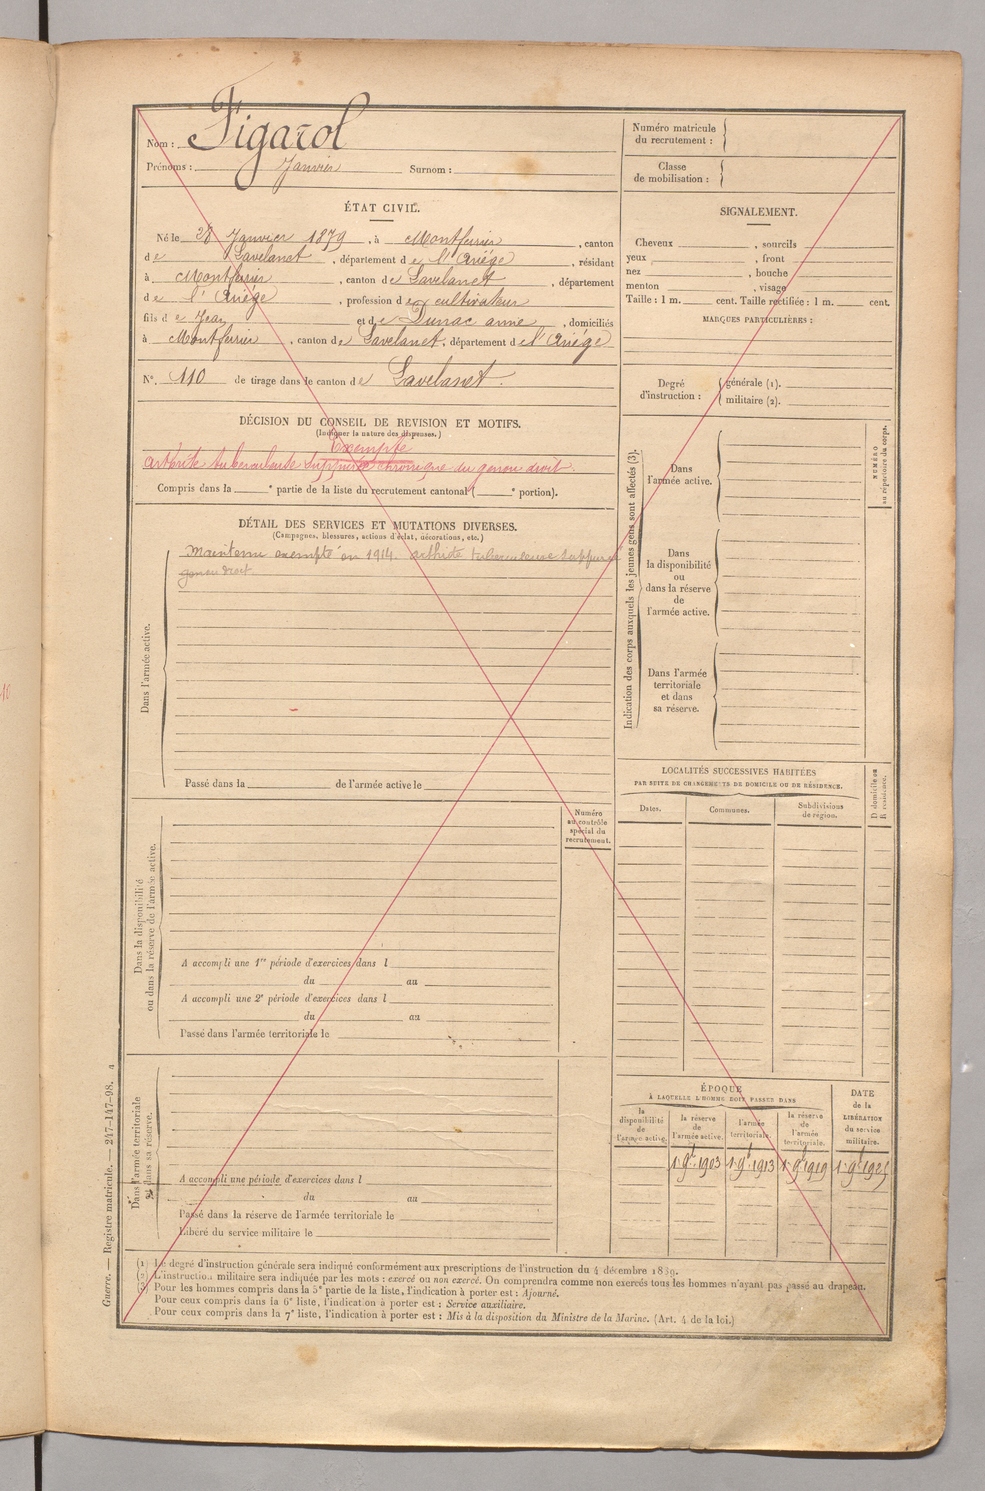 Nom : Figarol
Prénoms : Janvier Surnom :
ÉTAT CIVIL.
Né le 28 Janvier 1879, à Montferrier, canton
de Lavelanet, département de l'Ariège, résidant
à Montferrier, canton de Lavelanet, département
de l'Ariège, profession de cultivateur
fils de Jean et de Dunac anne, domiciliés
à Montferrier, canton de Lavelanet, département de l'Ariège
N°. 110 de tirage dans le canton de Lavelanet.
DÉCISION DU CONSEIL DE REVISION ET MOTIFS.
(Indiquer la nature des dispenses.)
Exempté
arthrite tuberculeuse suppurée chronique du genou droit.
Compris dans la ° partie de la liste du recrutement cantonal ( ° portion).
DÉTAIL DES SERVICES ET MUTATIONS DIVERSES.
(Campagnes, blessures, actions d'éclat, décorations, etc.)
Dans l'armée active.
Maintenu exempté en 1914. arthrite tuberculeuse suppurée
genou droit
Passé dans la de l'armée active le
Dans la disponibilité
ou dans la réserve de l'armée active.
Numéro
au contrôle
spécial du
recrutement.
A accompli une 1re période d'exercices dans l
du au
A accompli une 2e période d'exercices dans l
du au
Passé dans l'armée territoriale le
Dans l'armée territoriale
et dans sa réserve.
A accompli une période d'exercices dans l
du au
Passé dans la réserve de l'armée territoriale le
Libéré du service militaire le
Numéro matricule
du recrutement :
Classe
de mobilisation :
SIGNALEMENT.
Cheveux , sourcils
yeux , front
nez , bouche
menton , visage
Taille : 1 m. cent. Taille rectifiée : 1 m. cent.
MARQUES PARTICULIÈRES :
Degré
d'instruction :
générale (1).
militaire (2).
Indication des corps auxquels les jeunes gens sont affectés (3).
NUMÉRO
au répertoire du corps.
Dans
l'armée active.
Dans
la disponibilité
ou
dans la réserve
de
l'armée active.
Dans l'armée
territoriale
et dans
sa réserve.
LOCALITÉS SUCCESSIVES HABITÉES
PAR SUITE DE CHANGEMENTS DE DOMICILE OU DE RÉSIDENCE.
Dates. Communes. Subdivisions
de région.
D. domicile ou
R. résidence.
ÉPOQUE
À LAQUELLE L'HOMME DOIT PASSER DANS
la
disponibilité
de
l'armée active.
la réserve
de
l'armée active.
l'armée
territoriale.
la réserve
de
l'armée
territoriale.
DATE
de la
LIBÉRATION
du service
militaire.
1 9bre 1903 1 9bre 1913 1 9bre 1919 1 9bre 1925
(1) Le degré d'instruction générale sera indiqué conformément aux prescriptions de l'instruction du 4 décembre 1889.
(2) L'instruction militaire sera indiquée par les mots : exercé ou non exercé. On comprendra comme non exercés tous les hommes n'ayant pas passé au drapeau.
(3) Pour les hommes compris dans la 5e partie de la liste, l'indication à porter est : Ajourné.
Pour ceux compris dans la 6e liste, l'indication à porter est : Service auxiliaire.
Pour ceux compris dans la 7e liste, l'indication à porter est : Mis à la disposition du Ministre de la Marine. (Art. 4 de la loi.)
Guerre. — Registre matricule. — 247-147-98.